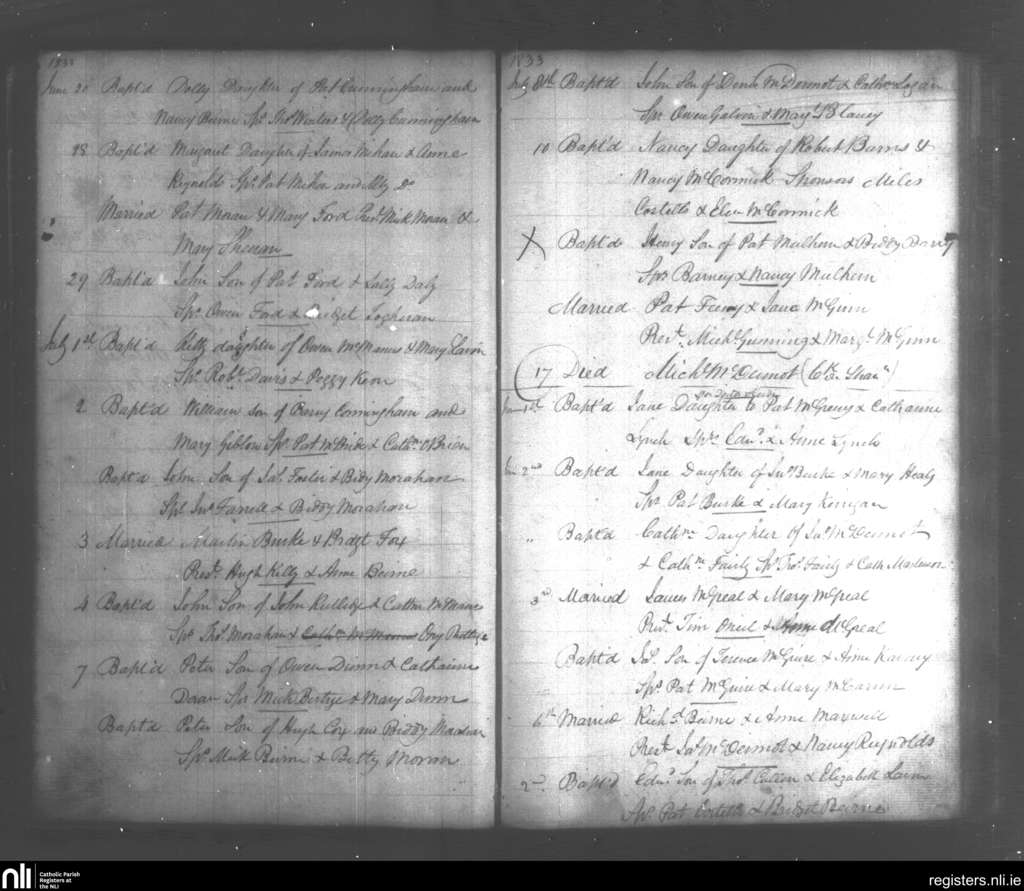 1833
June 20 Bapt'd Dolly Daughter of Pat Cunningham and
Nancy Beirne Sps. Thos & Dolly Cunningham
28 Bapt'd Margaret Daughter of James Mihan & Anne
Reynolds Sps. Pat Mihan and Do
Married Pat Moran & Mary Ford Prest. Mick Moran &
Mary
29 Bapt'd John Son of Pat Ford & Sally Daly
Sps. Owen Ford & Bridget
July 1st Bapt'd Kitty daughter of Owen McManus & Mary
Sps. Robt. Davis & Peggy Keon
2 Bapt'd William Son of Barny Conningham and
Mary Giblon Sps. Pat McBride & Cathn. OBrien
Bapt'd John Son of Jas. Foster & Bidy Morahan
Sps. Jno. Farrell & Biddy Morahan
3 Married Martin Burke & Bridgt Fox
Prest. Hugh Kelly & Anne Beirne
4 Bapt'd John Son of John Rutlege & Cathn
Sps. Thos. Morahan & Ony Rutlege
7 Bapt'd Peter Son of Owen Dunn & Catharine
Doran Sps Mick & Mary Dunn
Bapt'd Peter Son of Hugh Cox and Biddy
Sps. Mick Beirne & Betty Moran
1833
July 8th Bapt'd John Son of Denis McDermot & Cathn Logan
Sps Owen Galvin & Mary Blaney
10 Bapt'd Nancy Daughter of Robert Barns &
Nancy McCormick Sponsors Miles
Costello & Elen McCormick
X Bapt'd Henry Son of Pat Mulhern & Biddy
Sps Barney & Nancy Mulhern
Married Pat & Jane McGuinn
Prest. Michl. Gunning & Margt. McGuinn
17 Died Michl. McDermot
1st Bapt'd Jane Daughter to Pat McGreevy & Catharine
Lynch Sps. Edwd. & Anne Lynch
2nd Bapt'd Jane Daughter of Jno. Burke & Mary Healy
Sps Pat Burke & Mary Kerrigan
" Bapt'd Cathne Daughter of Jas. McDermot
& Cathne Fairly Sps. Thos. Fairly & Cath
3rd Married James McGreal & Mary McGreal
Prest. Tim Oneil & Anne McGreal
Bapt'd Jas. Son of Terence McGuire & Anne
Sps. Pat McGuire & Mary
6th Married Richd. Beirne & Anne Maxwell
Prest. Jas. McDermot & Nancy Reynolds
2nd Bapt'd Edwd. Son of Thos. Cullen & Elizabeth
Sps. Pat Costello & Bridget Beirne
nli
Catholic Parish
Registers at
the NLI
registers.nli.ie